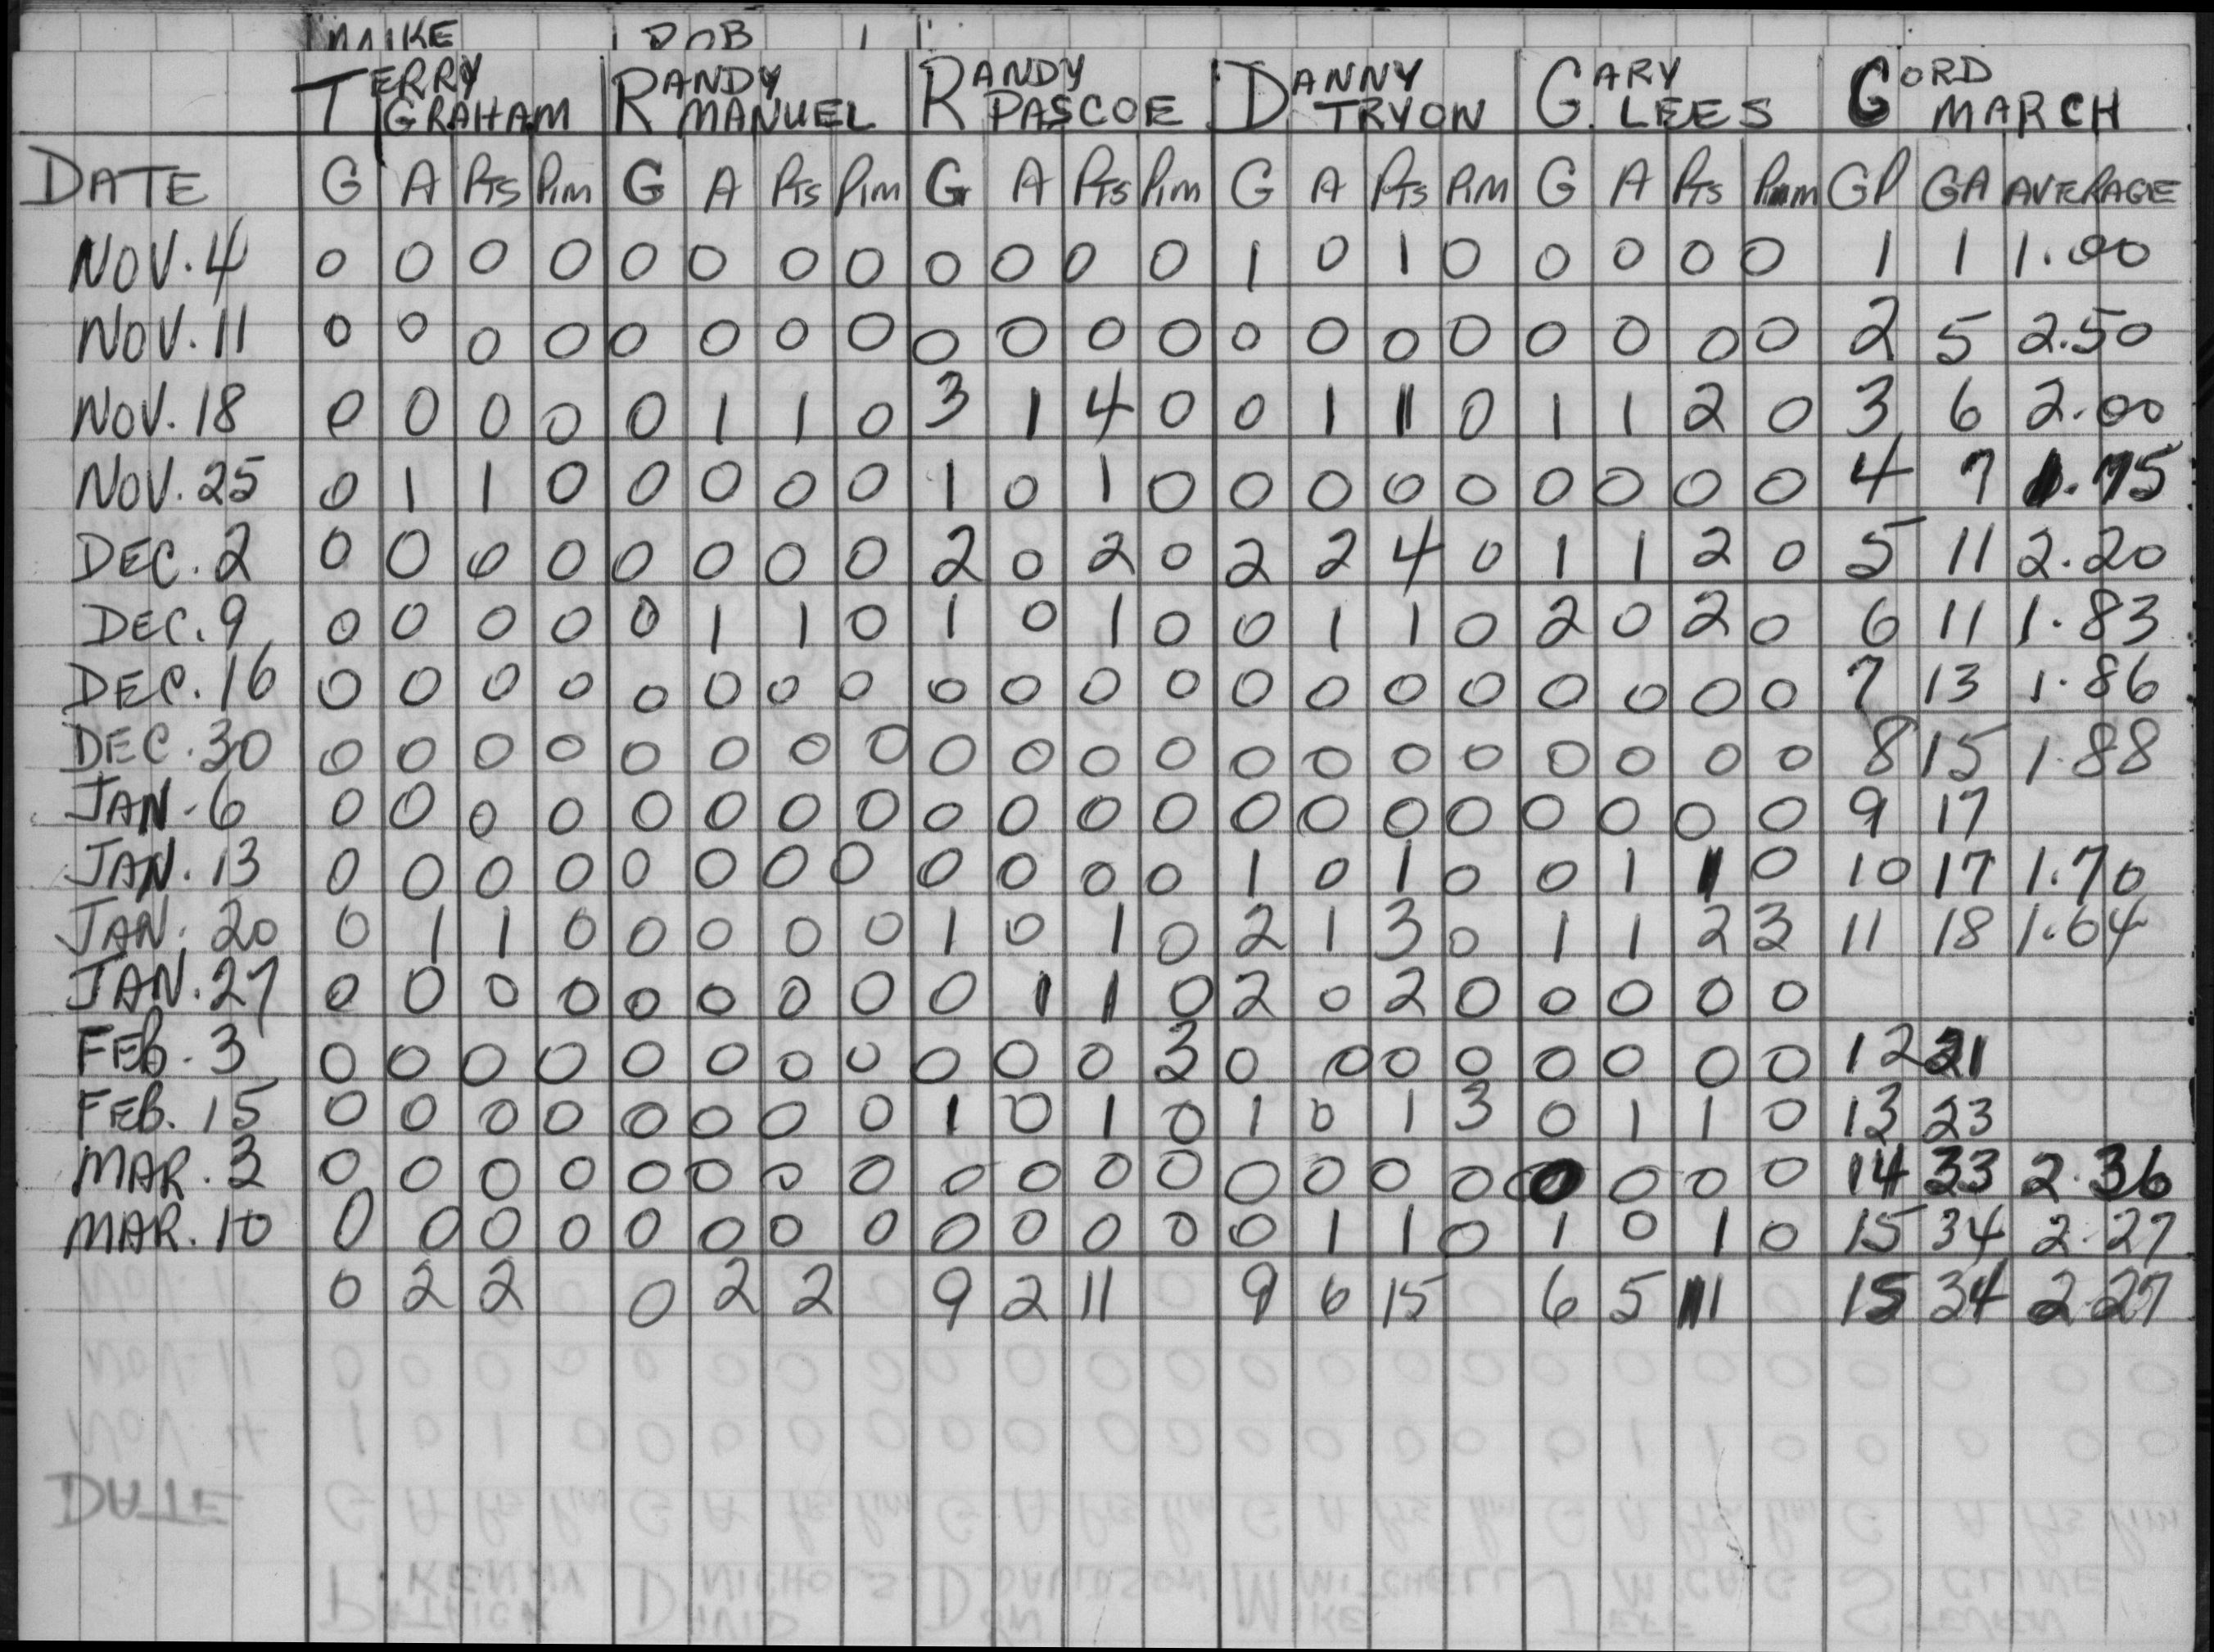 MIKE ROB
TERRY GRAHAM RANDY MANUEL RANDY PASCOE DANNY TRYON GARY LEES GORD MARCH
DATE G A PTS PIM G A PTS PIM G A PTS PIM G A PTS PIM G A PTS PIM GP GA AVERAGE
NOV. 4 0 0 0 0 0 0 0 0 0 0 0 0 1 0 1 0 0 0 0 0 1 1 1.00
NOV. 11 0 0 0 0 0 0 0 0 0 0 0 0 0 0 0 0 0 0 0 0 2 5 2.50
NOV. 18 0 0 0 0 0 1 1 0 3 1 4 0 0 1 1 0 1 1 2 0 3 6 2.00
NOV. 25 0 1 1 0 0 0 0 0 1 0 1 0 0 0 0 0 0 0 0 0 4 7 1.75
DEC. 2 0 0 0 0 0 0 0 0 2 0 2 0 2 2 4 0 1 1 2 0 5 11 2.20
DEC. 9 0 0 0 0 0 1 1 0 1 0 1 0 0 1 1 0 2 0 2 0 6 11 1.83
DEC. 16 0 0 0 0 0 0 0 0 0 0 0 0 0 0 0 0 0 0 0 0 7 13 1.86
DEC. 30 0 0 0 0 0 0 0 0 0 0 0 0 0 0 0 0 0 0 0 0 8 15 1.88
JAN. 6 0 0 0 0 0 0 0 0 0 0 0 0 0 0 0 0 0 0 0 0 9 17
JAN. 13 0 0 0 0 0 0 0 0 0 0 0 0 1 0 1 0 0 1 1 0 10 17 1.70
JAN. 20 0 1 1 0 0 0 0 0 1 0 1 0 2 1 3 0 1 1 2 3 11 18 1.64
JAN. 27 0 0 0 0 0 0 0 0 0 1 1 0 2 0 2 0 0 0 0 0
FEB. 3 0 0 0 0 0 0 0 0 0 0 0 3 0 0 0 0 0 0 0 0 12 21
FEB. 15 0 0 0 0 0 0 0 0 1 0 1 0 1 0 1 3 0 1 1 0 13 23
MAR. 3 0 0 0 0 0 0 0 0 0 0 0 0 0 0 0 0 0 0 0 0 14 33 2.36
MAR. 10 0 0 0 0 0 0 0 0 0 0 0 0 0 1 1 0 1 0 1 0 15 34 2.27
0 2 2 0 2 2 9 2 11 9 6 15 6 5 11 15 34 2.27